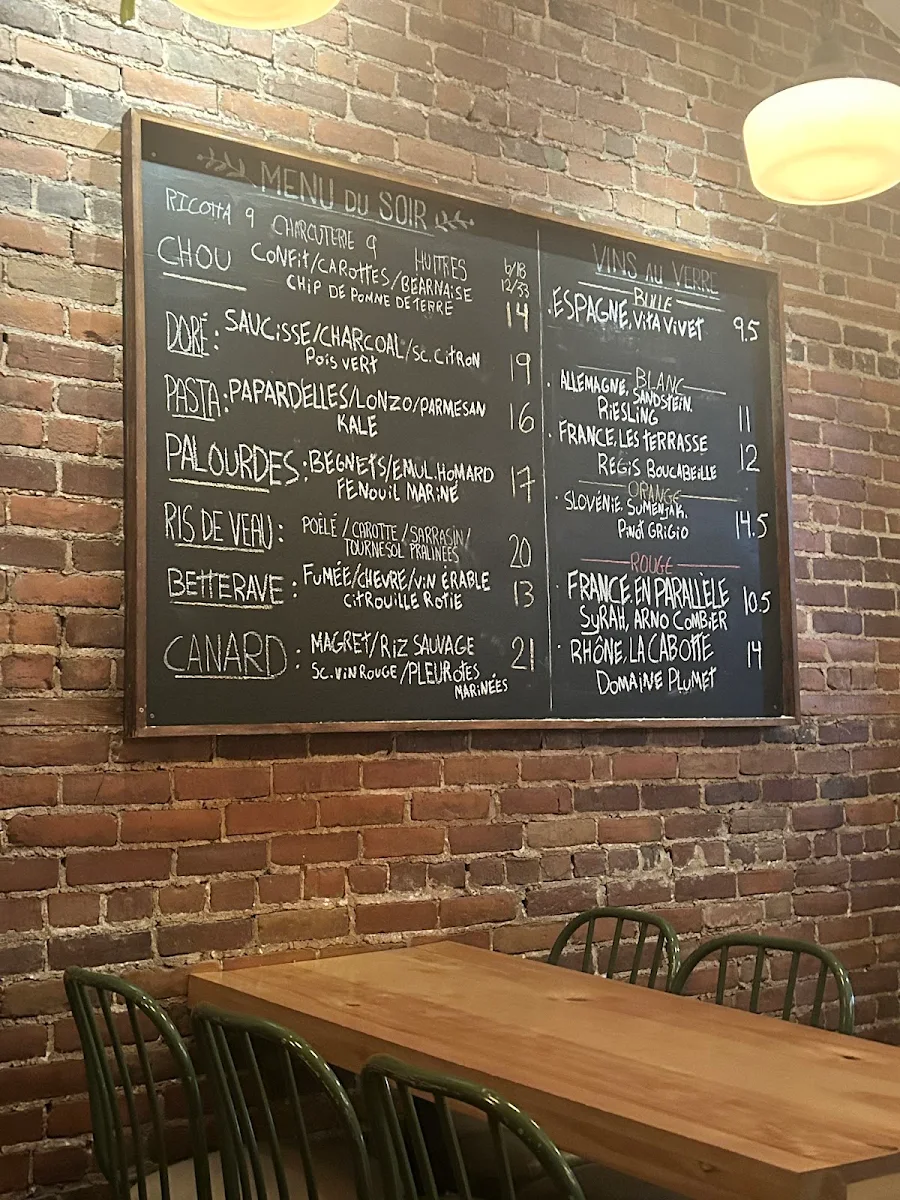 MENU DU SOIR
RICOTTA 9 CHARCUTERIE 9 HUITRES 6/18
12/33
CHOU CONFIT/CAROTTES/BÉARNAISE
CHIP DE POMME DE TERRE 14
DORÉ: SAUCISSE/CHARCOAL/SC.CITRON
POIS VERT 19
PASTA: PAPARDELLES/LONZO/PARMESAN
KALE 16
PALOURDES: BEGNETS/EMUL.HOMARD
FENOUIL MARINÉ 17
RIS DE VEAU: POÊLÉ/CAROTTE/SARRASIN/
TOURNESOL PRALINÉES 20
BETTERAVE: FUMÉE/CHEVRE/VIN ÉRABLE
CITROUILLE ROTIE 13
CANARD: MAGRET/RIZ SAUVAGE
SC.VIN ROUGE/PLEUROTES 21
MARINÉES
VINS AU VERRE
BULLE
. ESPAGNE, VITA VIVET 9.5
BLANC
. ALLEMAGNE, SANDSTEIN.
RIESLING 11
. FRANCE, LES TERRASSE
REGIS BOUCABEILLE 12
ORANGE
. SLOVÉNIE, SUMENJAK.
PINOT GRIGIO 14.5
ROUGE
. FRANCE, EN PARALLÈLE
SYRAH, ARNO COMBIER 10.5
. RHÔNE, LA CABOTTE
DOMAINE PLUMET 14